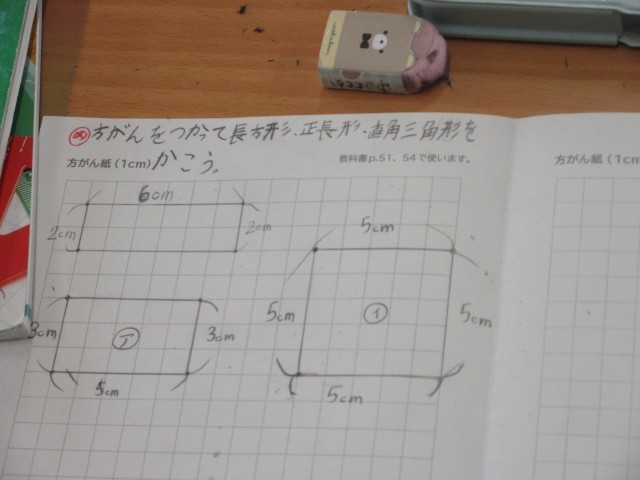 め 方がんをつかって長方形、正長形、直角三角形を
方がん紙(1cm) かこう。 教科書p.51、54で使います。
方がん紙(1cm
6cm
2cm 2cm
5cm
5cm イ 5cm
5cm
3cm ア 3cm
5cm